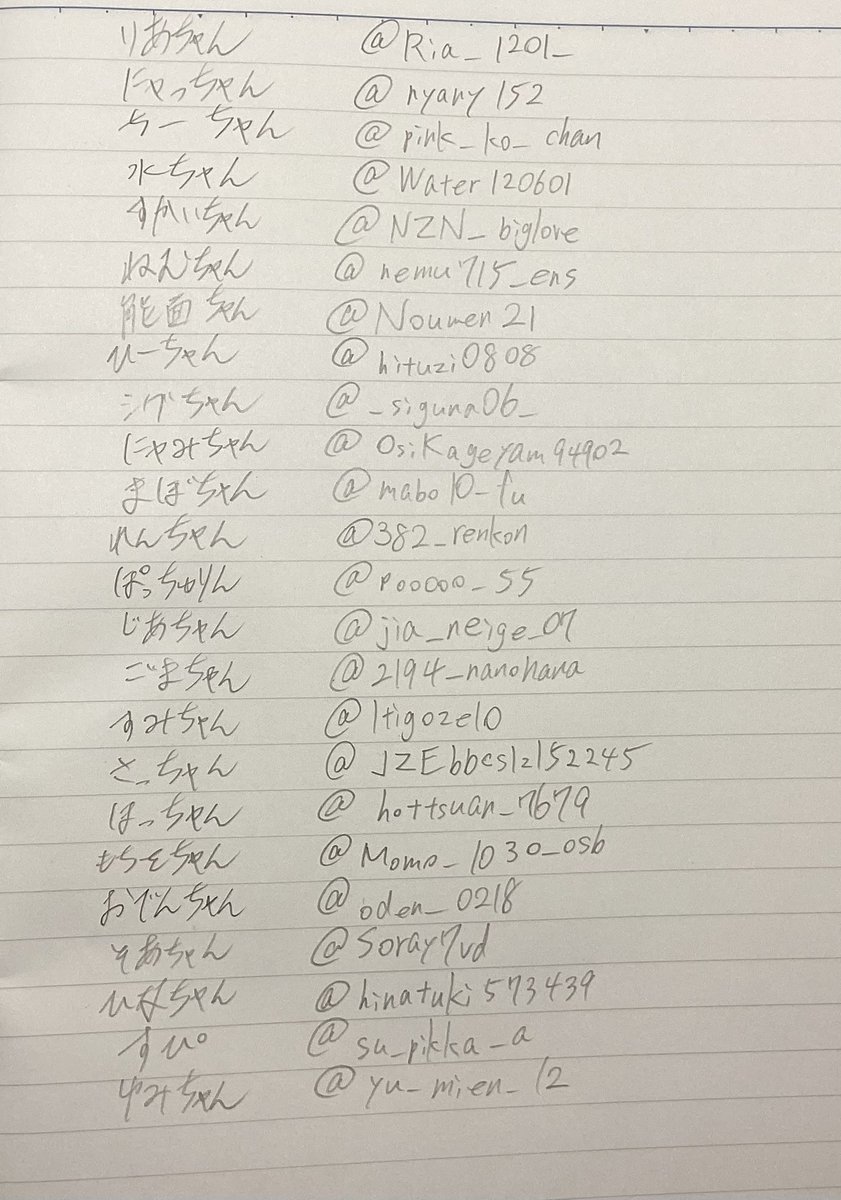 りあちゃん @Ria_1201_
にゃっちゃん @nyany152
ちーちゃん @pink_ko_chan
水ちゃん @Water120601
すかいちゃん @NZN_biglove
ねむちゃん @nemu715_ens
能面ちゃん @Noumen21
ひーちゃん @hituzi0808
シグちゃん @_siguna06_
にゃみちゃん @OsiKageyam94902
まぼちゃん @mabo10_fu
れんちゃん @382_renkon
ぽっちゃりん @Pooooo_55
じあちゃん @jia_neige_07
ごまちゃん @2194_nanohana
すみちゃん @Itigoze10
さっちゃん @JZEbbcslz152245
ほっちゃん @hottsuan_7679
もちもちゃん @Momo_1030_osb
おでんちゃん @oden_0218
そあちゃん @Soray7vd
ひなちゃん @hinatuki573439
すぴ @su_pikka_a
ゆみちゃん @yu_mien_12